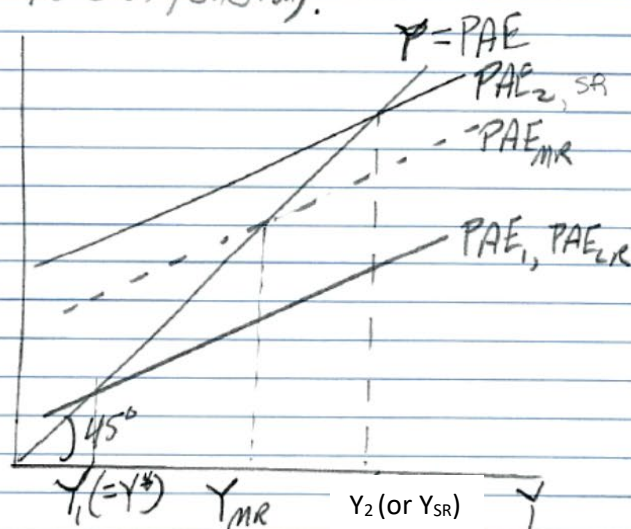 Y = PAE
PAE₂, SR
PAE_MR
PAE₁, PAE_LR
45°
Y₁ (=Y*) Y_MR Y₂ (or Y_SR) Y